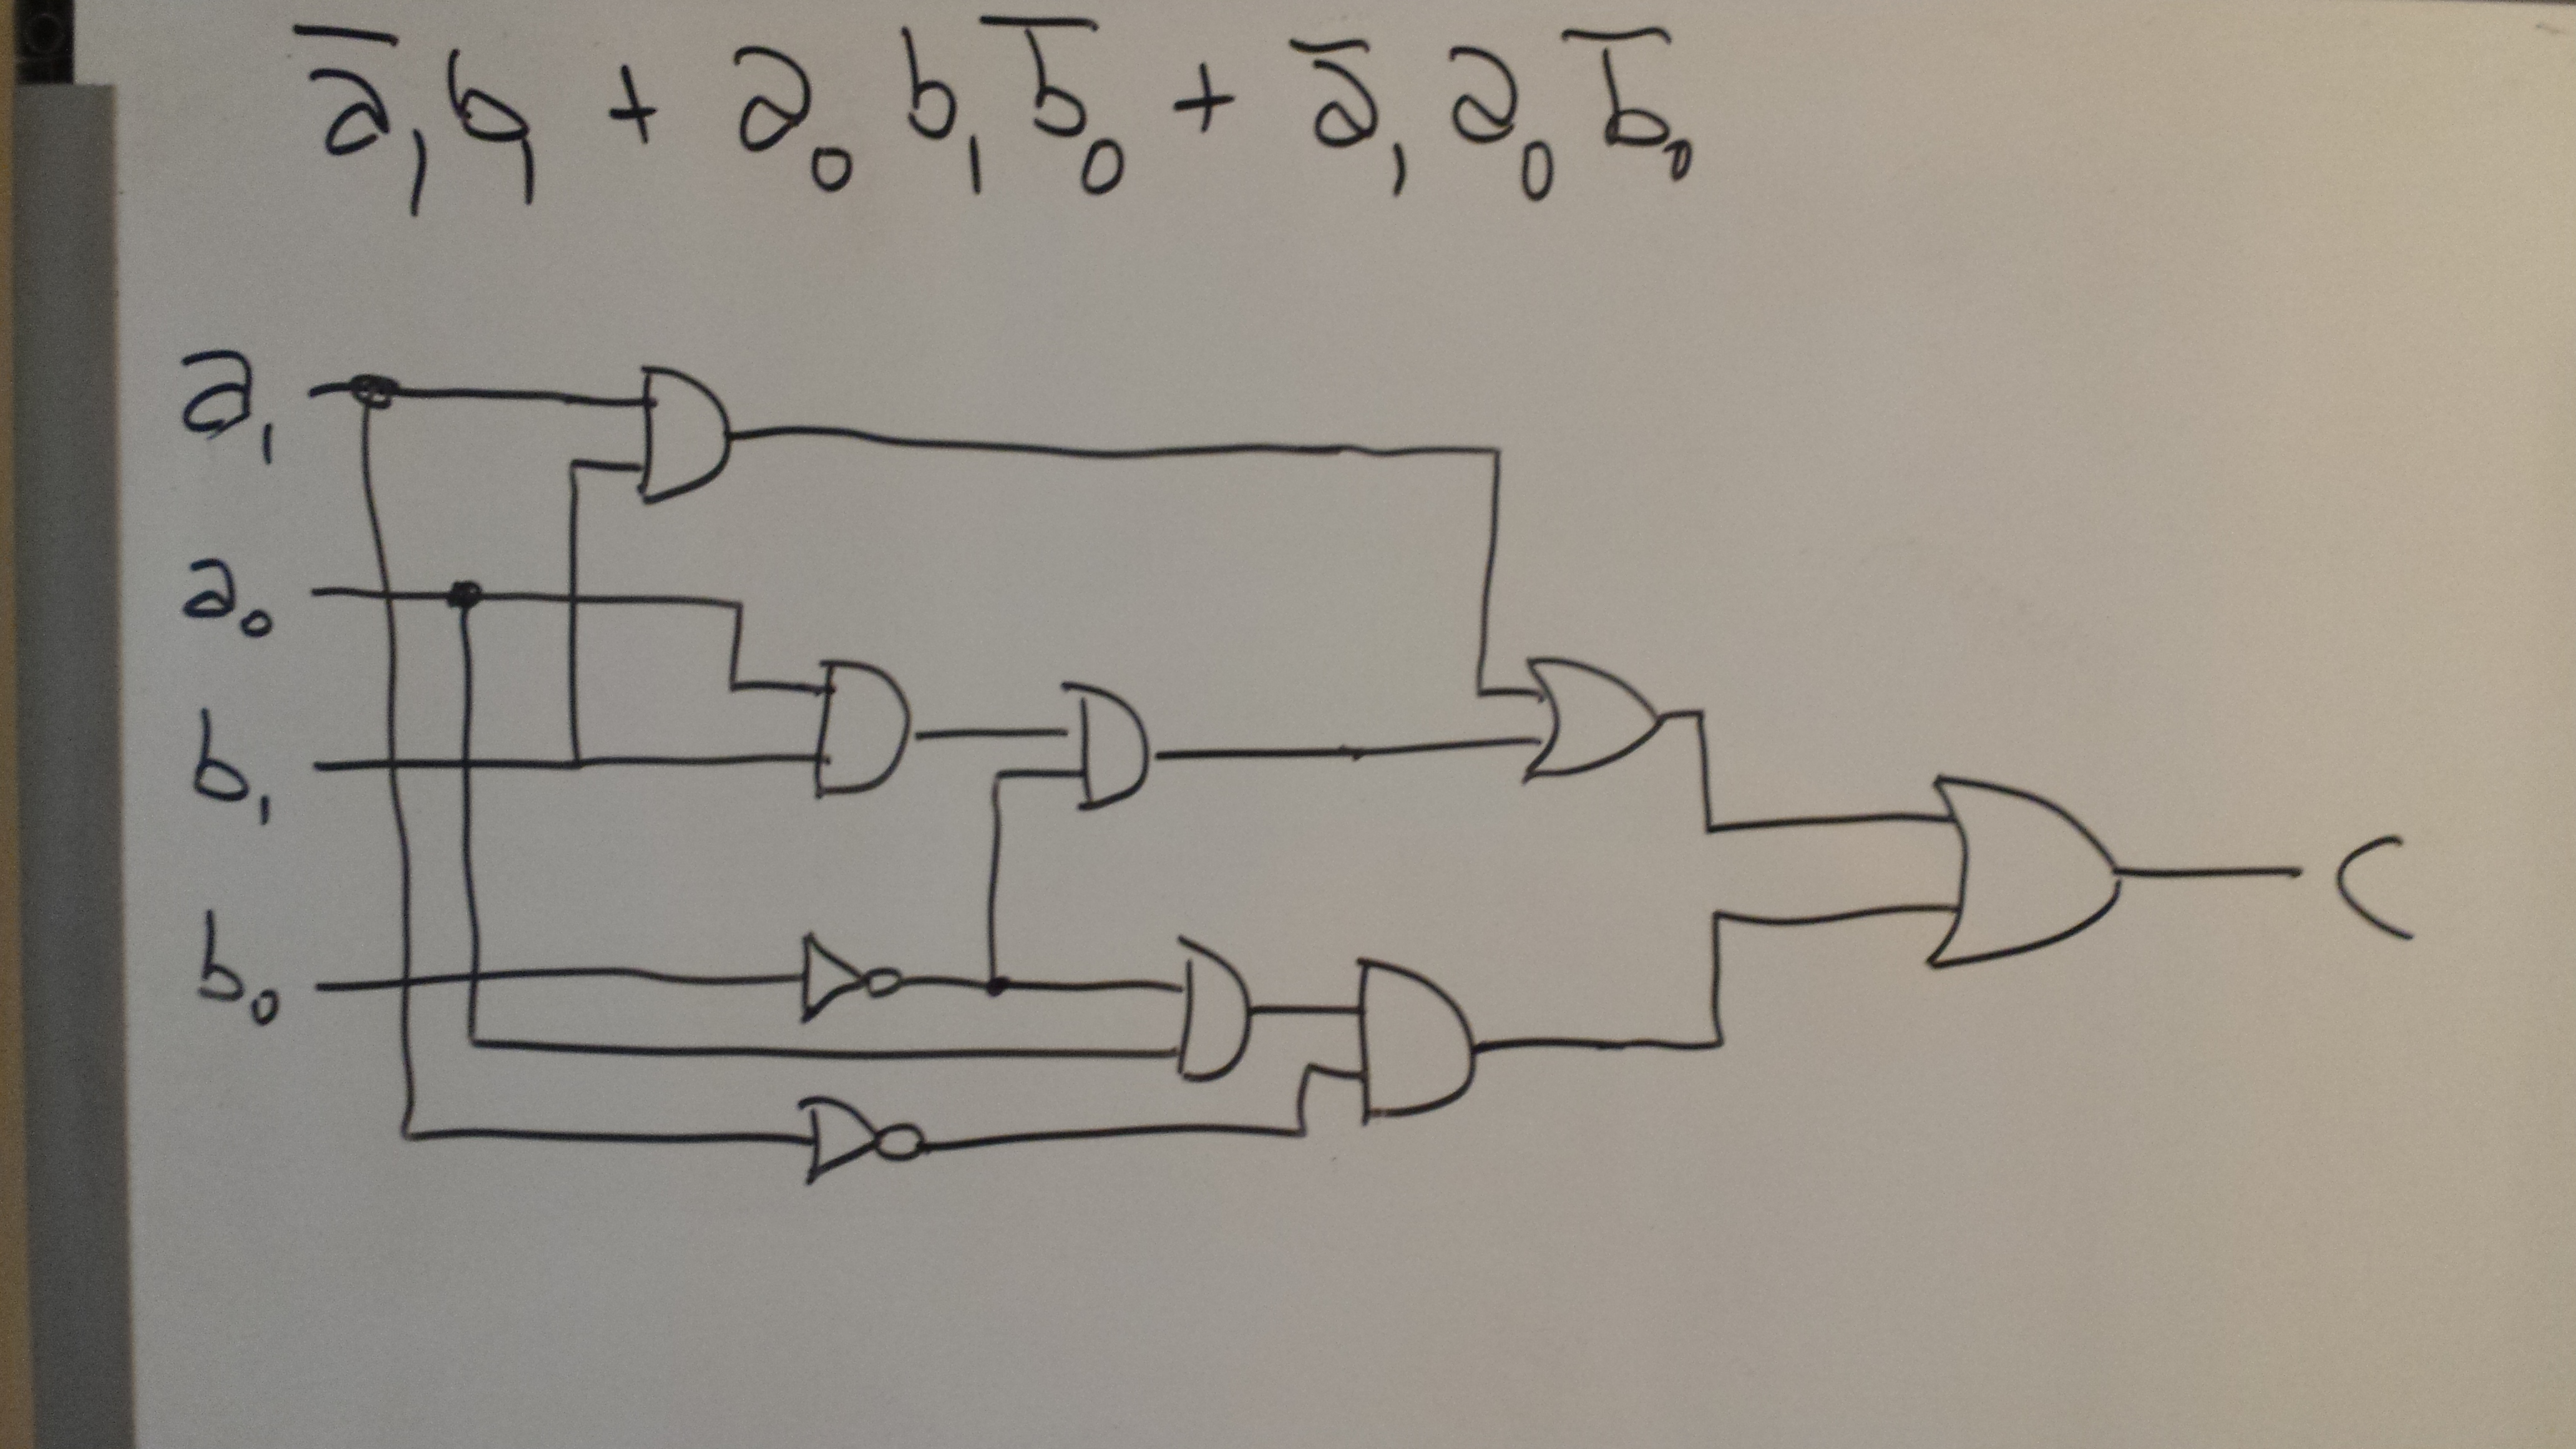 a̅₁b₁ + a₀b₁b̅₀ + a̅₁a₀b̅₀
a₁
a₀
b₁
b₀
C